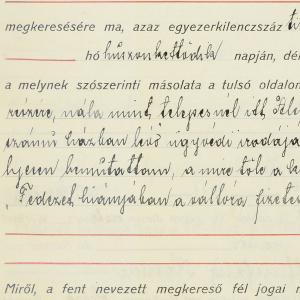 megkeresésére ma, azaz egyezerkilencszáz ti
hó huszonkettődik napján, dél
a melynek szószerinti másolata a tulsó oldalon
részére, nála mint telepesnél itt
számú házban lévő ügyvédi irodája
lyesen bemutattam, a mire tőle a k
"Fedezet hiányjában a váltóra fizetés
Miről, a fent nevezett megkereső fél jogai m